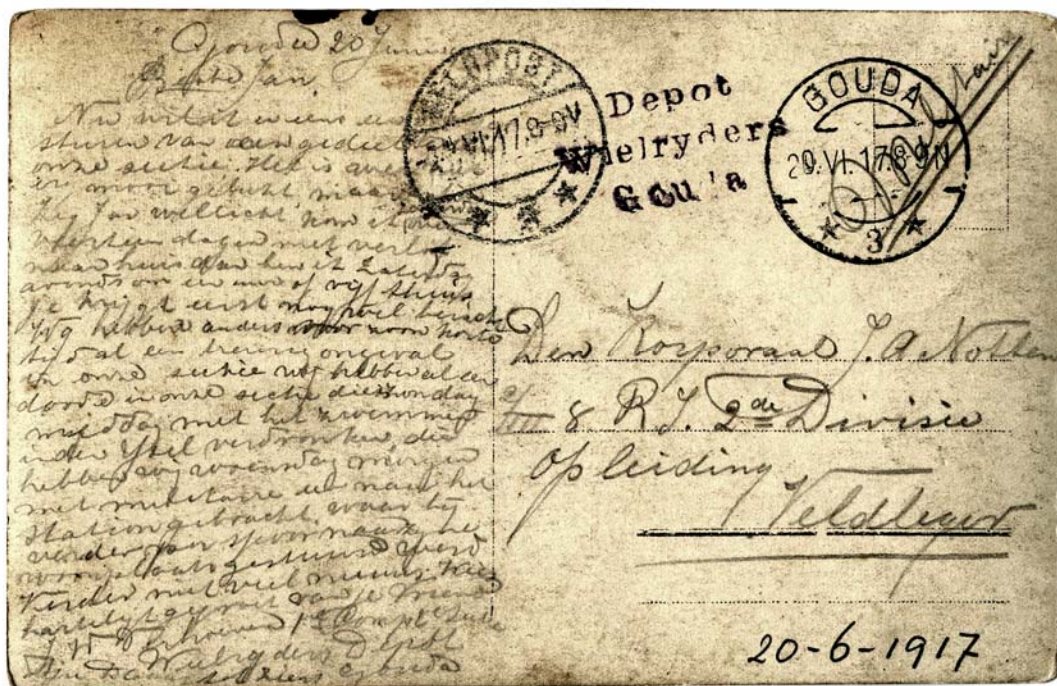 Gouda 20 Juni
Beste Jan.
Nu wil ik u eens een
sturen van een gedeelte
onze sectie. Het is
er mooi gebukt
Zeg Jan wellicht kom ik
veertien dagen met verlof
naar huis dan ben ik Zaterdag
avonds om een uur of vijf thuis
Je krijgt eerst nog wel bericht
Wij hebben anders voor korte
tijd al een treurig ongeval
in onze sectie wij hebben al een
doode in onze sectie die Zondag
middag met het zwemmen
in den IJsel verdronken, die
hebben wij woensdag morgen
met militaire eer naar het
station gebracht waar hij
verder per spoor naar zijne
woonplaats gestuurd werd
Verder niet veel nieuws. Wees
hartelijk gegroet van je vriend
1e Comp 1e Sectie
Wielryders Depot
Gouda
VELDPOST
VI.17.8-9V
Depot
Wielryders
Gouda
GOUDA
20.VI.17.8-9N
3
Militair
Den Korporaal J. A Notten
8 R.I. 2de Divisie
Opleiding
Veldleger
20-6-1917